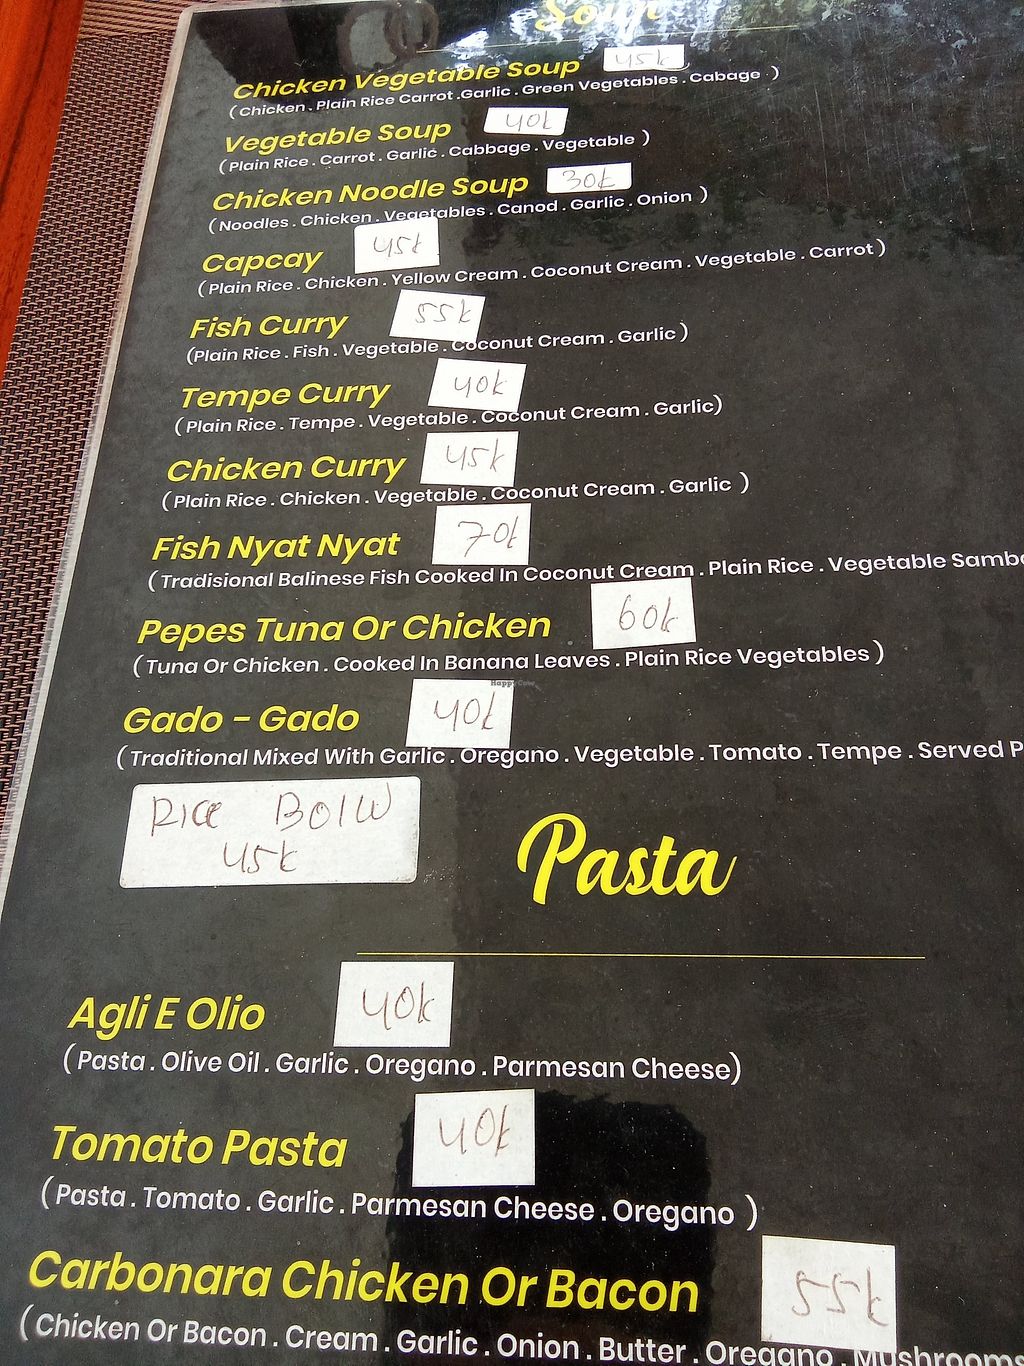 Soup
Chicken Vegetable Soup 45k
( Chicken . Plain Rice Carrot .Garlic . Green Vegetables . Cabage )
Vegetable Soup 40k
(Plain Rice . Carrot . Garlic . Cabbage . Vegetable )
Chicken Noodle Soup 30k
(Noodles . Chicken . Vegetables . Canod . Garlic . Onion )
Capcay 45k
(Plain Rice . Chicken . Yellow Cream . Coconut Cream . Vegetable . Carrot )
Fish Curry 55k
(Plain Rice . Fish . Vegetable . Coconut Cream . Garlic )
Tempe Curry 40k
(Plain Rice . Tempe . Vegetable . Coconut Cream . Garlic)
Chicken Curry 45k
(Plain Rice . Chicken . Vegetable . Coconut Cream . Garlic )
Fish Nyat Nyat 70k
(Tradisional Balinese Fish Cooked In Coconut Cream . Plain Rice . Vegetable Samb
Pepes Tuna Or Chicken 60k
(Tuna Or Chicken . Cooked In Banana Leaves . Plain Rice Vegetables )
HappyCow
Gado - Gado 40k
(Traditional Mixed With Garlic . Oregano . Vegetable . Tomato . Tempe . Served P
RICE BOLW
45k
Pasta
Agli E Olio 40k
(Pasta . Olive Oil . Garlic . Oregano . Parmesan Cheese)
Tomato Pasta 40k
(Pasta . Tomato . Garlic . Parmesan Cheese . Oregano )
Carbonara Chicken Or Bacon 55k
(Chicken Or Bacon . Cream . Garlic . Onion . Butter . Oregano Mushrooms